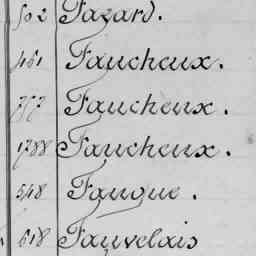 502 Fazard.
461 Faucheux.
757 Faucheux.
1788 Faucheux.
548 Fauque.
618 Fauvelais